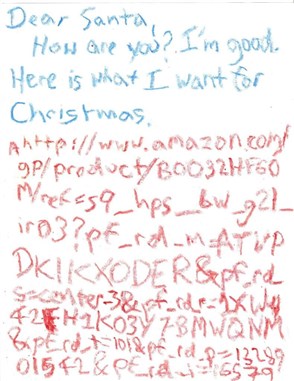 Dear Santa,
How are you? I'm good.
Here is what I want for
Christmas.
http://www.amazon.com/
gp/product/B0032HF60
M/ref=s9_hps_bw_g21_
ir03?pf_rd_m=ATVP
DKIKX0DER&pf_rd_
s=center-3&pf_rd_r=1XW4
42EH1K03Y7BMWQNM
&pf_rd_t=101&pf_rd_p=13289
01542&pf_rd_i=16579